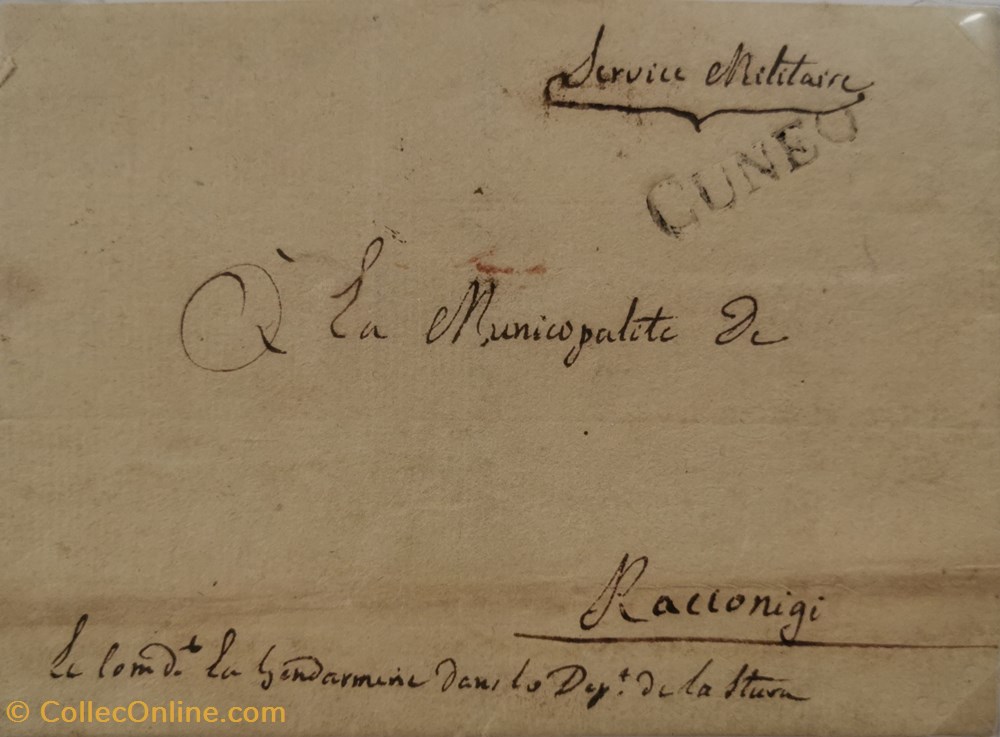 Service Militaire
CUNEO
À la Municopalité de
Racconigi
Le Comdt la Gendarmerie dans le Dept de la Stura
© CollecOnline.com